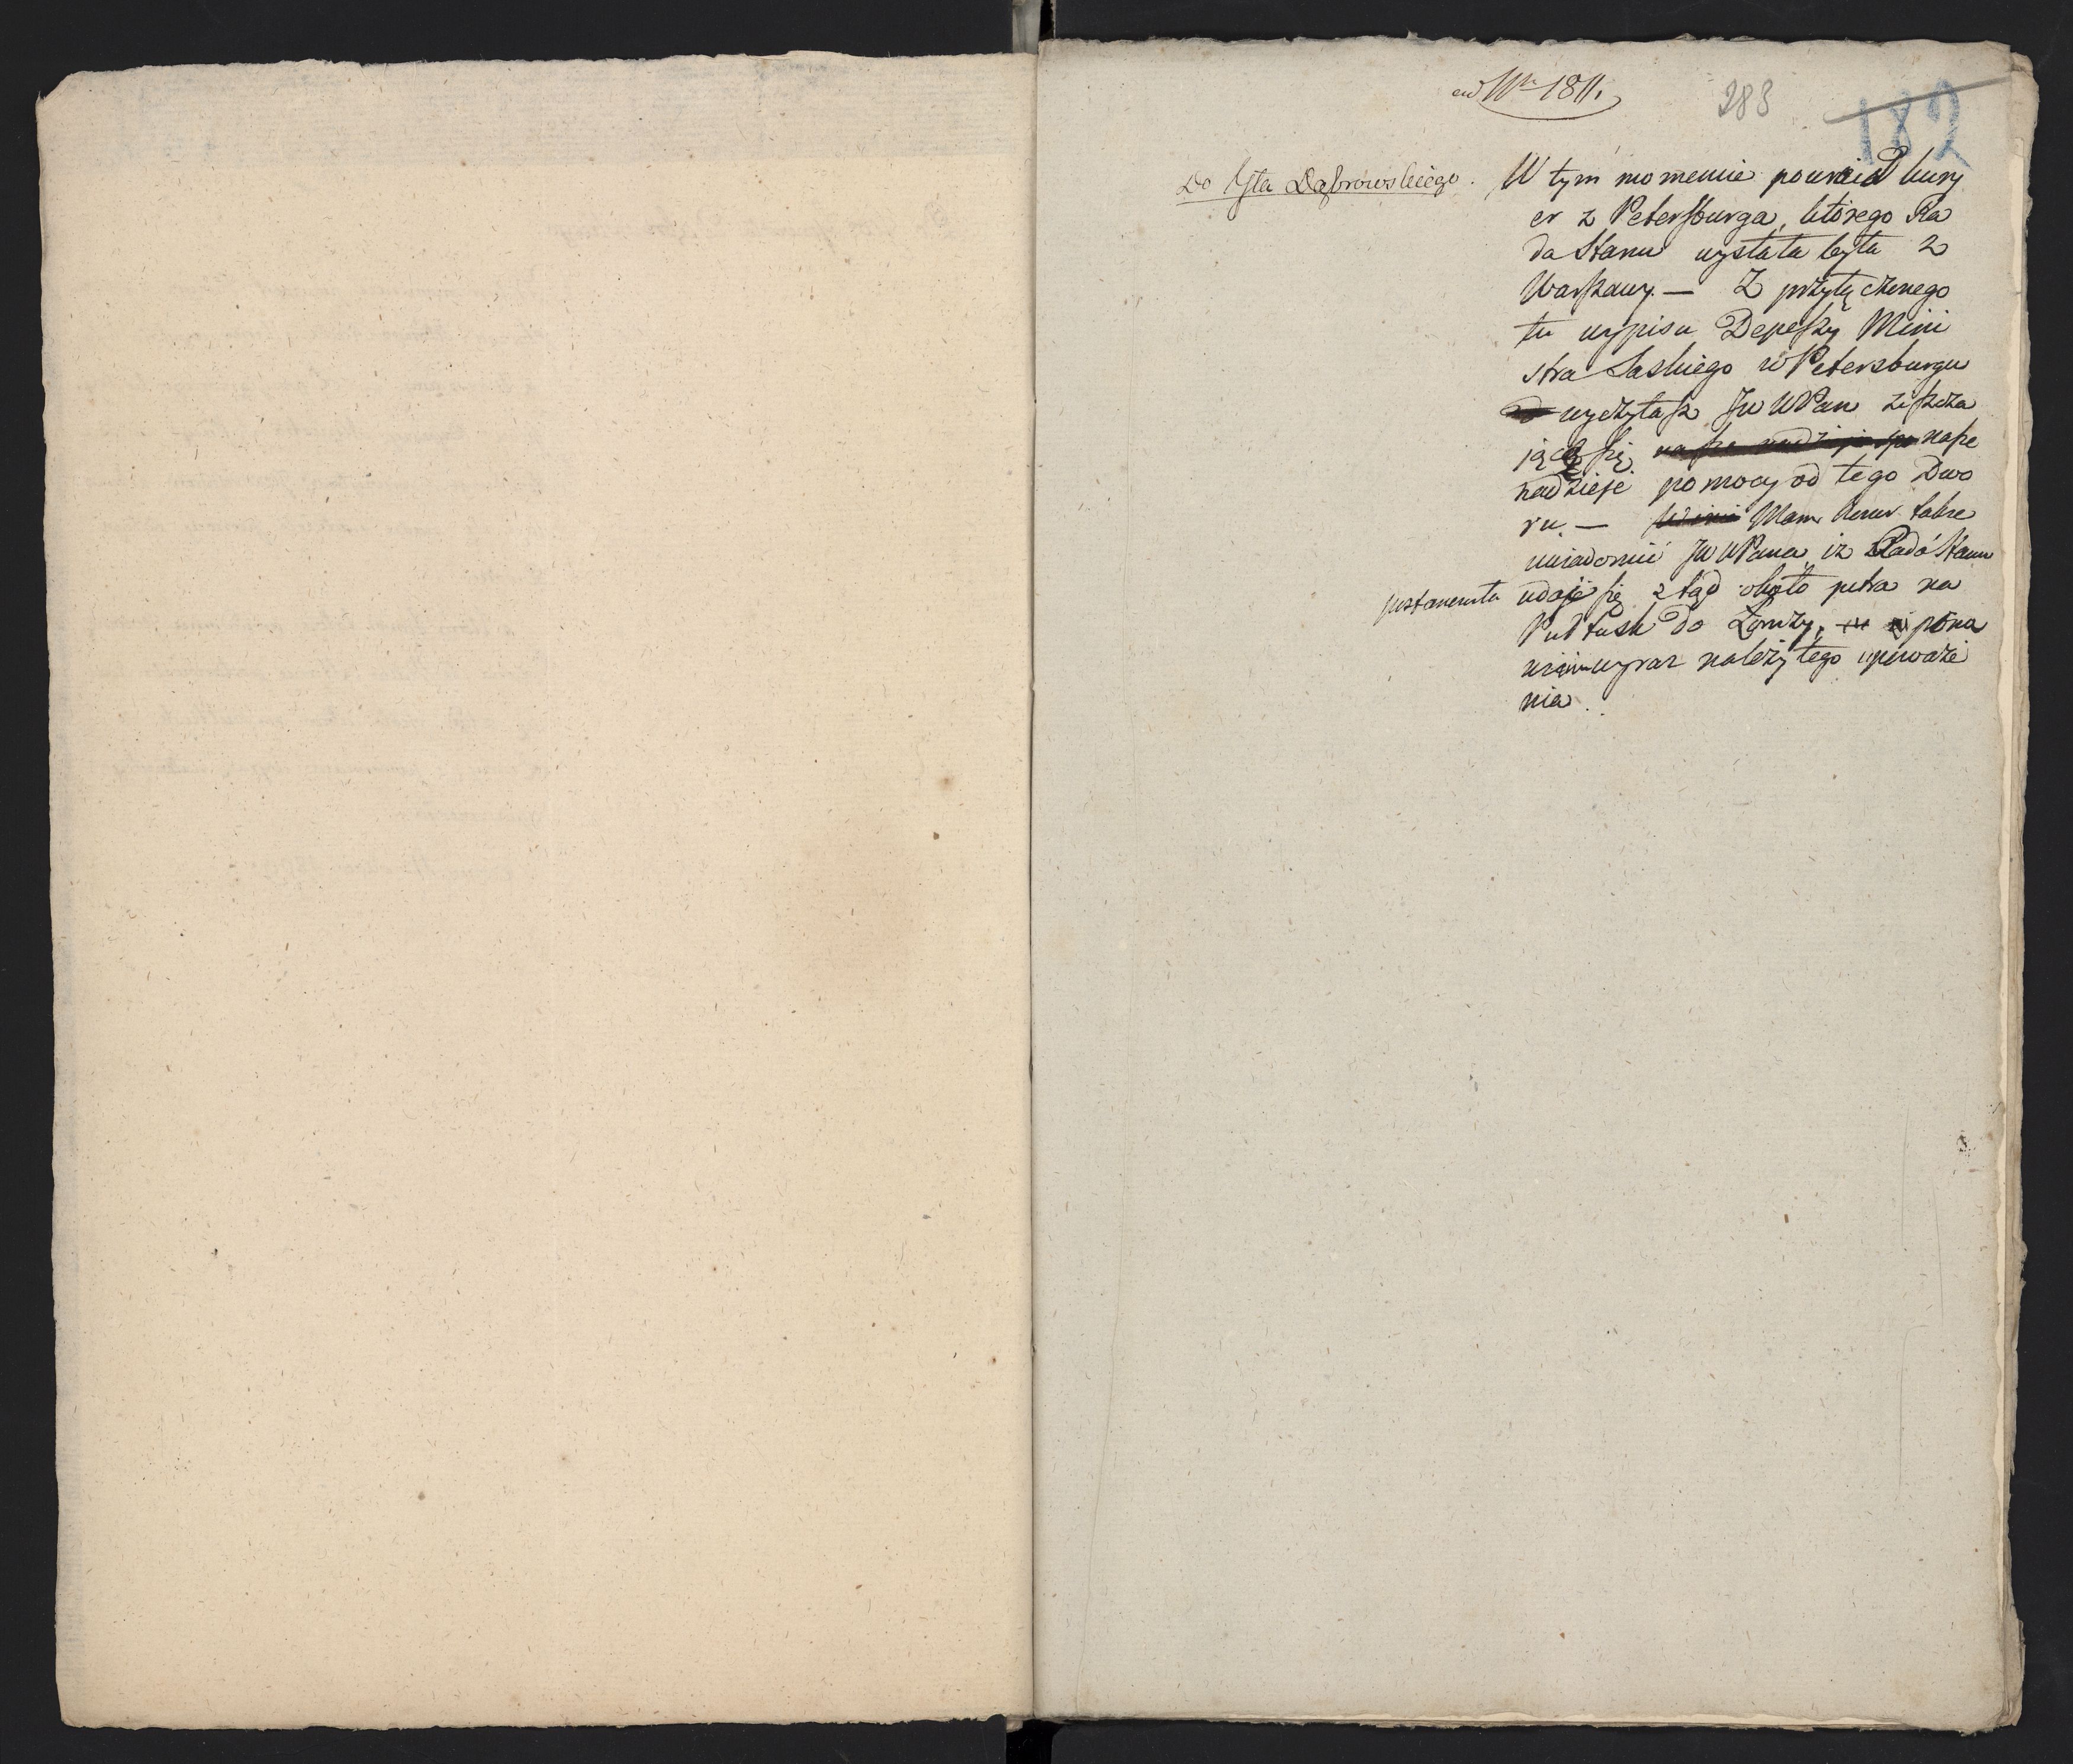 ad Nr 1811.
283
182
Do Gła Dąbrowskiego.
W tym momencie powrócił kury
er z Petersburga, którego Ra
da Stanu wysłała była z
Warszawy. — Z przyłączonego
tu wypisu Depeszy Mini
stra Saskiego w Petersburgu
wyczytasz JW WPan ziszcza
jące się nasze
nadzieje pomocy od tego Dwo
ru. — Mam także
uwiadomić JW WPana, iż Rada Stanu
udaje się ztąd jutro na
Pułtusk do Łomży, i pona
wiam wyraz należytego upoważe
nia.